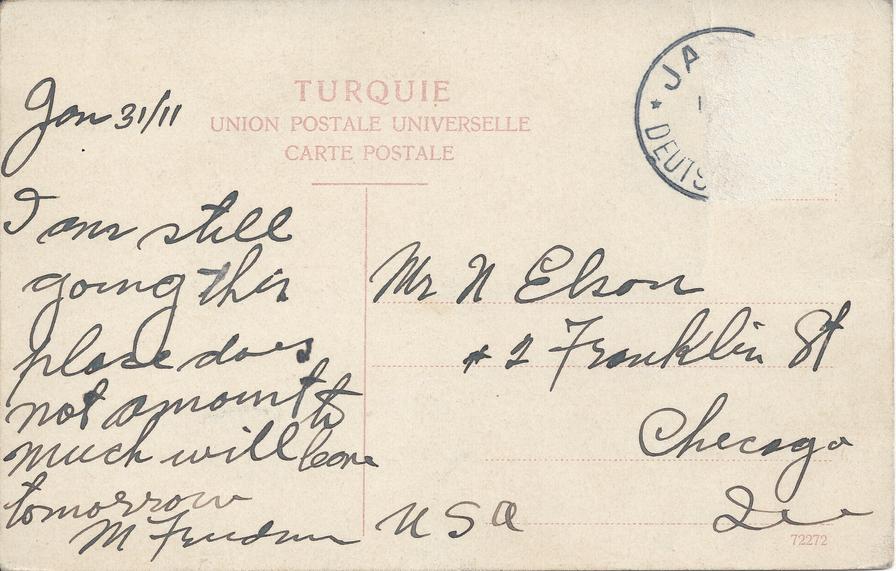 TURQUIE
UNION POSTALE UNIVERSELLE
CARTE POSTALE
JA
DEUTS
Jan 31/11
I am still
going this
place does
not amount to
much will leave
tomorrow
M
Mr N Elson
# 2 Franklin St
Checago
Ill
USA
72272